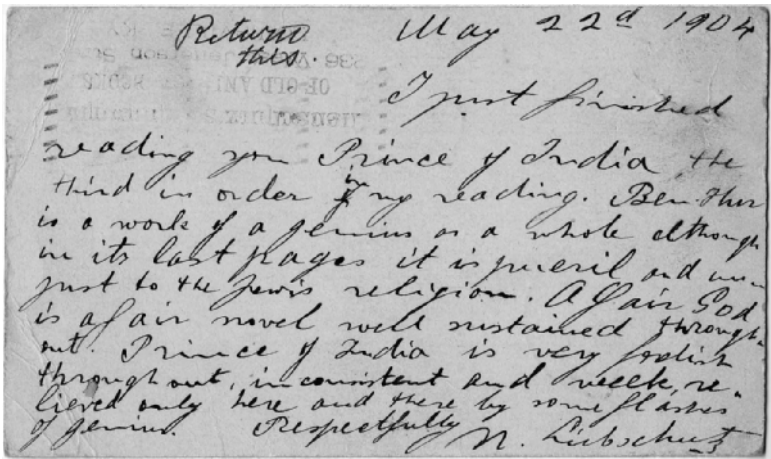 Return
this.
May 22d 1904
I just finished
reading your Prince of India the
third in order in my reading. Ben-Hur
is a work of a genius as a whole although
in its last pages it is pueril and un-
just to the Jewis religion. A fair God
is a fair novel well sustained through-
out. Prince of India is very foolish
throughout, inconsistent and week, re-
lieved only here and there by some flashes
of genius. Respectfully N. Liebschutz